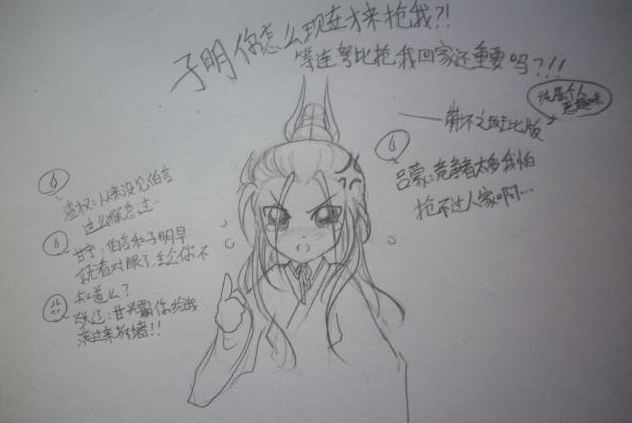 子明你怎么现在才来抢我?!
等连弩比抢我回家还重要吗?!!
——萌不之斑比版
纯属个人恶趣味
吕蒙:竞争者太多我怕
抢不过人家啊…
孙权:从来没见伯言
这么傲急过…
甘宁:伯言和子明早
就看对眼了,主公你不
知道么?
张辽:甘兴霸你给我
滚过来补墙!!